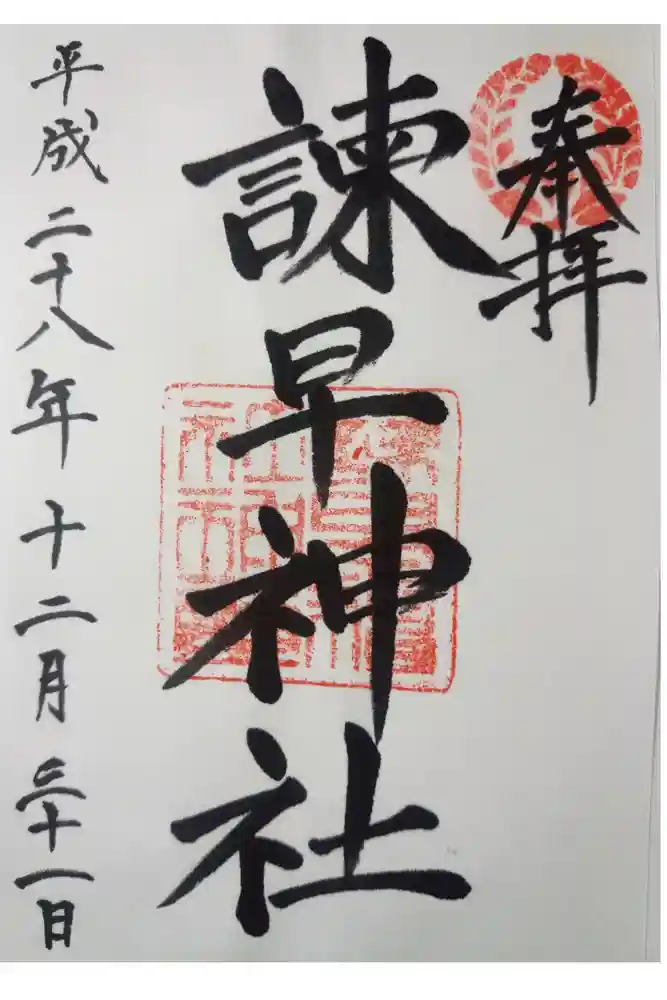 奉拝
諫早神社
平成二十八年十二月三十一日